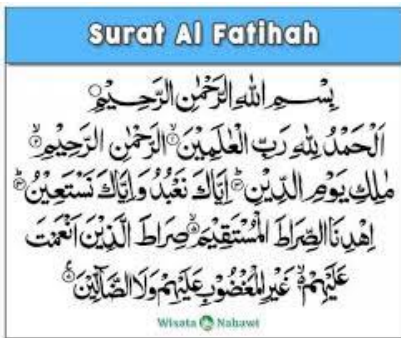 Surat Al Fatihah
بِسْــمِ اللّٰهِ الرَّحْمٰنِ الرَّحِــيْمِ
اَلْحَمْدُ لِلّٰهِ رَبِّ الْعٰلَمِيْنَۙ الرَّحْمٰنِ الرَّحِيْمِۙ
مٰلِكِ يَوْمِ الدِّيْنِۗ اِيَّاكَ نَعْبُدُ وَاِيَّاكَ نَسْتَعِيْنُۗ
اِهْدِنَا الصِّرَاطَ الْمُسْتَقِيْمَۙ صِرَاطَ الَّذِيْنَ اَنْعَمْتَ
عَلَيْهِمْ ەۙ غَيْرِ الْمَغْضُوْبِ عَلَيْهِمْ وَلَا الضَّاۤلِّيْنَ
Wisata Nabawi